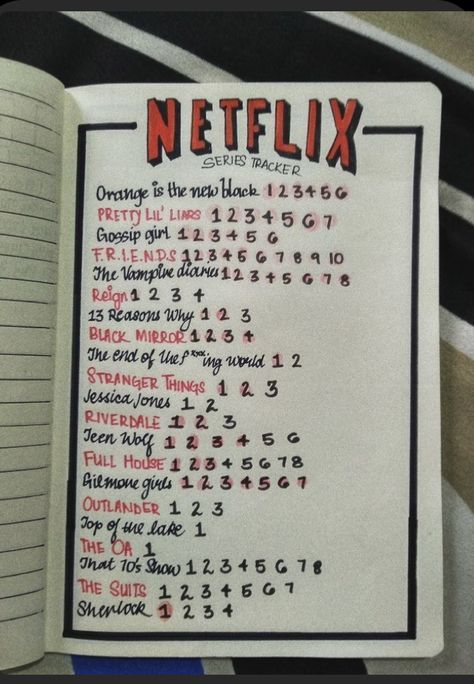 NETFLIX
SERIES TRACKER
Orange is the new black 1 2 3 4 5 6
PRETTY LIL' LIARS 1 2 3 4 5 6 7
Gossip girl 1 2 3 4 5 6
F.R.I.E.N.D.S 1 2 3 4 5 6 7 8 9 10
The Vampire diaries 1 2 3 4 5 6 7 8
Reign 1 2 3 4
13 Reasons Why 1 2 3
BLACK MIRROR 1 2 3 4
The end of the f***ing world 1 2
STRANGER THINGS 1 2 3
Jessica Jones 1 2
RIVERDALE 1 2 3
Teen Wolf 1 2 3 4 5 6
FULL HOUSE 1 2 3 4 5 6 7 8
Gilmore girls 1 2 3 4 5 6 7
OUTLANDER 1 2 3
Top of the lake 1
THE OA 1
That 70's Show 1 2 3 4 5 6 7 8
THE SUITS 1 2 3 4 5 6 7
Sherlock 1 2 3 4